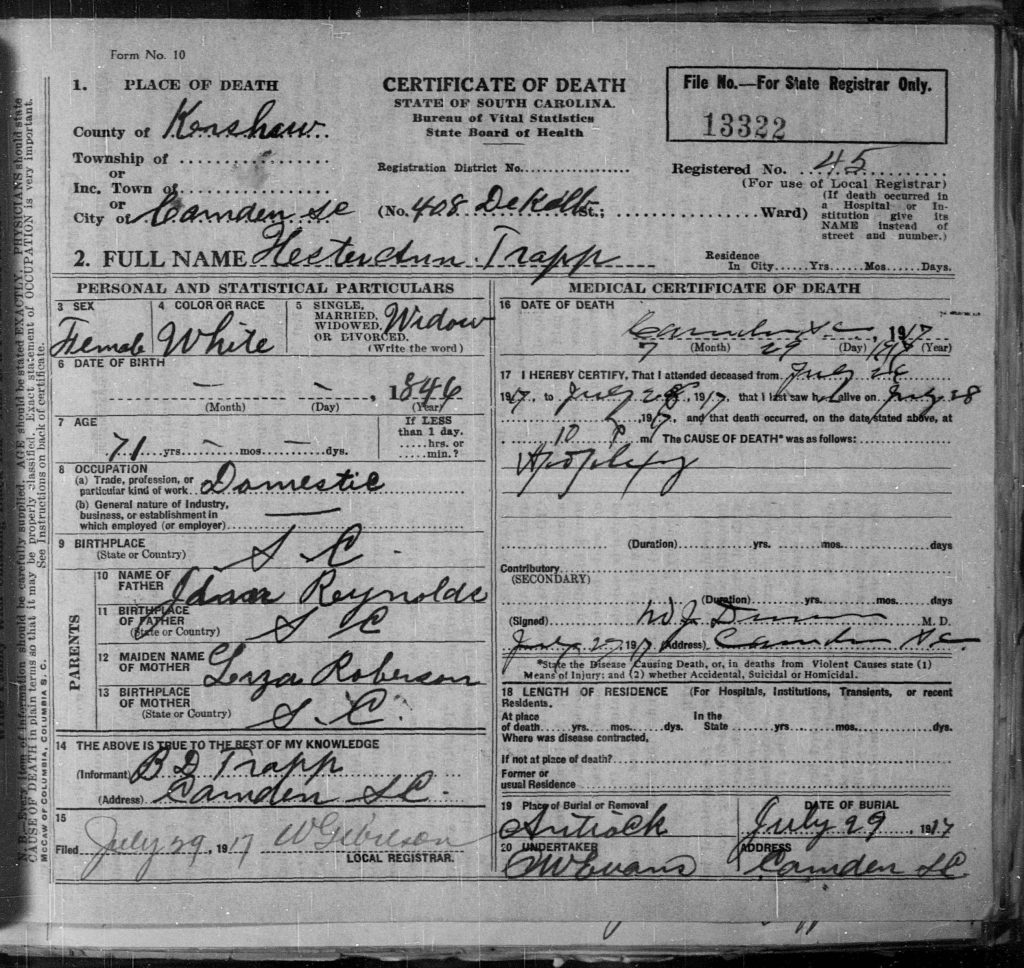 Form No. 10
1. PLACE OF DEATH
County of Kershaw
Township of
or
Inc. Town of
or
City of Camden SC
CERTIFICATE OF DEATH
STATE OF SOUTH CAROLINA.
Bureau of Vital Statistics
State Board of Health
Registration District No.
(No. 408 DeKalb St.; Ward)
File No.—For State Registrar Only.
13322
Registered No. 45
(For use of Local Registrar)
(If death occurred in
a Hospital or In-
stitution give its
NAME instead of
street and number.)
2. FULL NAME Hester Ann Trapp
Residence
In City Yrs. Mos. Days.
PERSONAL AND STATISTICAL PARTICULARS
3 SEX
Female
4 COLOR OR RACE
White
5 SINGLE,
MARRIED,
WIDOWED,
OR DIVORCED.
Widow
(Write the word)
6 DATE OF BIRTH
— — , 1846
(Month) (Day) (Year)
7 AGE
71 yrs. — mos. — dys.
If LESS
than 1 day.
hrs. or
min.?
8 OCCUPATION
(a) Trade, profession, or
particular kind of work Domestic
(b) General nature of Industry,
business, or establishment in
which employed (or employer) —
9 BIRTHPLACE
(State or Country) S C.
PARENTS
10 NAME OF
FATHER Reynolds
11 BIRTHPLACE
OF FATHER
(State or Country) S C
12 MAIDEN NAME
OF MOTHER Roberson
13 BIRTHPLACE
OF MOTHER
(State or Country) S C.
14 THE ABOVE IS TRUE TO THE BEST OF MY KNOWLEDGE
(Informant) B D Trapp
(Address) Camden S C.
15
Filed July 29, 1917
LOCAL REGISTRAR.
MEDICAL CERTIFICATE OF DEATH
16 DATE OF DEATH
Camden S C, 1917
7 (Month) 29 (Day) (Year)
17 I HEREBY CERTIFY, That I attended deceased from July
1917, to July 28, 1917, that I last saw h alive on July 28
, 1917, and that death occurred, on the date stated above, at
10 P m The CAUSE OF DEATH* was as follows:
Apoplexy
(Duration) yrs. mos. days
Contributory
(SECONDARY)
(Duration) yrs. mos. days
(Signed) W J M. D.
July 1917 (Address) Camden S C.
*State the Disease Causing Death, or, in deaths from Violent Causes state (1)
Means of Injury; and (2) whether Accidental, Suicidal or Homicidal.
18 LENGTH OF RESIDENCE (For Hospitals, Institutions, Transients, or recent
Residents.
At place
of death yrs. mos. dys.
In the
State yrs. mos. dys.
Where was disease contracted,
If not at place of death?
Former or
usual Residence
19 Place of Burial or Removal
Antiock
DATE OF BURIAL
July 29 1917
20 UNDERTAKER
Evans
ADDRESS
Camden S C
CAUSE OF DEATH in plain terms so that it may be properly classified. Exact statement of OCCUPATION is very important.
See Instructions on back of certificate.
McCAW OF COLUMBIA, COLUMBIA S. C.